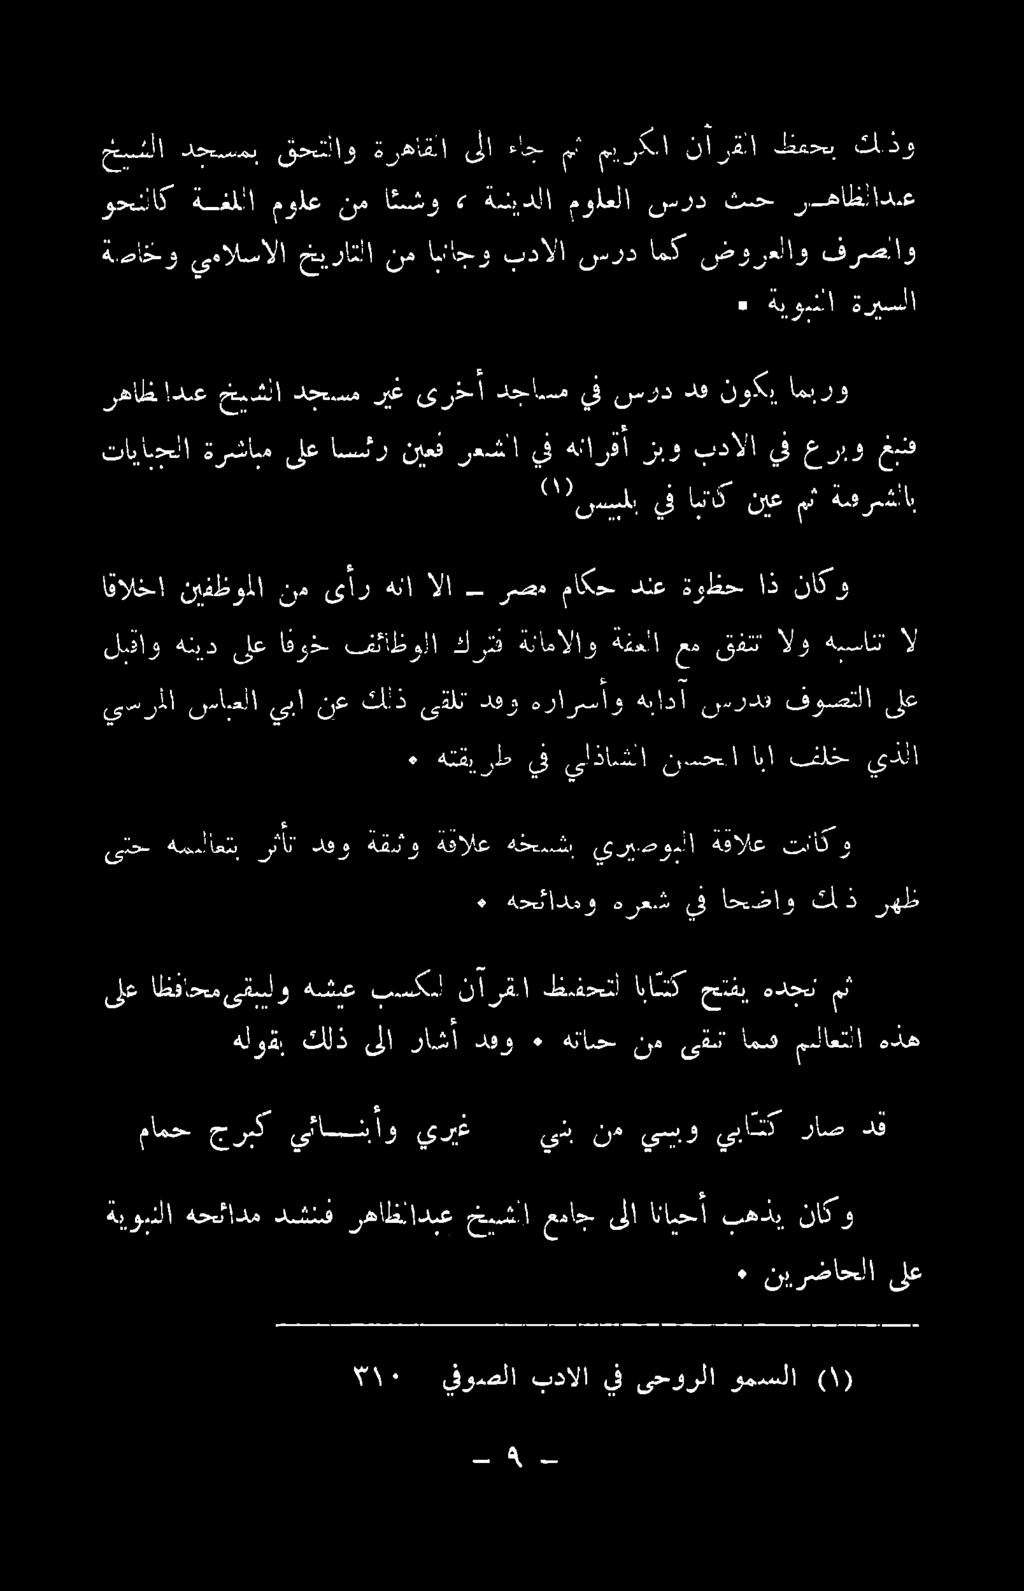 وذلك بحفظ القرآن الكريم ثم جاء الى القاهرة والتحق بمسجد الشيخ
عبدالظاهـر حيث درس العلوم الدينية ، وشيئا من علوم اللغـة كالنحو
والصرف والعروض كما درس الادب وجانبا من التاريخ الاسلامي وخاصة
السيرة النبوية .
وربما يكون قد درس في مساجد أخرى غير مسجد الشيخ عبدالظاهر
فنبغ وبرع في الادب وبز أقرانه في الشعر فعين رئيسا على مباشرة الجبايات
بالشرقية ثم عين كاتبا في بلبيس(١)
وكان ذا حظوة عند حكام مصر – الا انه رأى من الموظفين اخلاقا
لا تناسبه ولا تتفق مع العفة والامانة فترك الوظائف خوفا على دينه واقبل
على التصوف فدرس آدابه وأسراره وقد تلقى ذلك عن ابي العباس المرسي
الذي خلف ابا الحسن الشاذلي في طريقته .
وكانت علاقة البوصيري بشيخه علاقة وثيقة وقد تأثر بتعاليمه حتى
ظهر ذلك واضحا في شعره ومدائحه .
ثم نجده يفتح كتّابا لتحفيظ القرآن ليكسب عيشه وليبقى محافظا على
هذه التعاليم فيما تبقى من حياته . وقد أشار الى ذلك بقوله
قد صار كتّابي وبيتي من بني غيري وأبنـــائي كبرج حمام
وكان يذهب أحيانا الى جامع الشيخ عبدالظاهر فينشد مدائحه النبوية
على الحاضرين .
(١) السمو الروحى في الادب الصوفي ٣١٠
– ٩ –